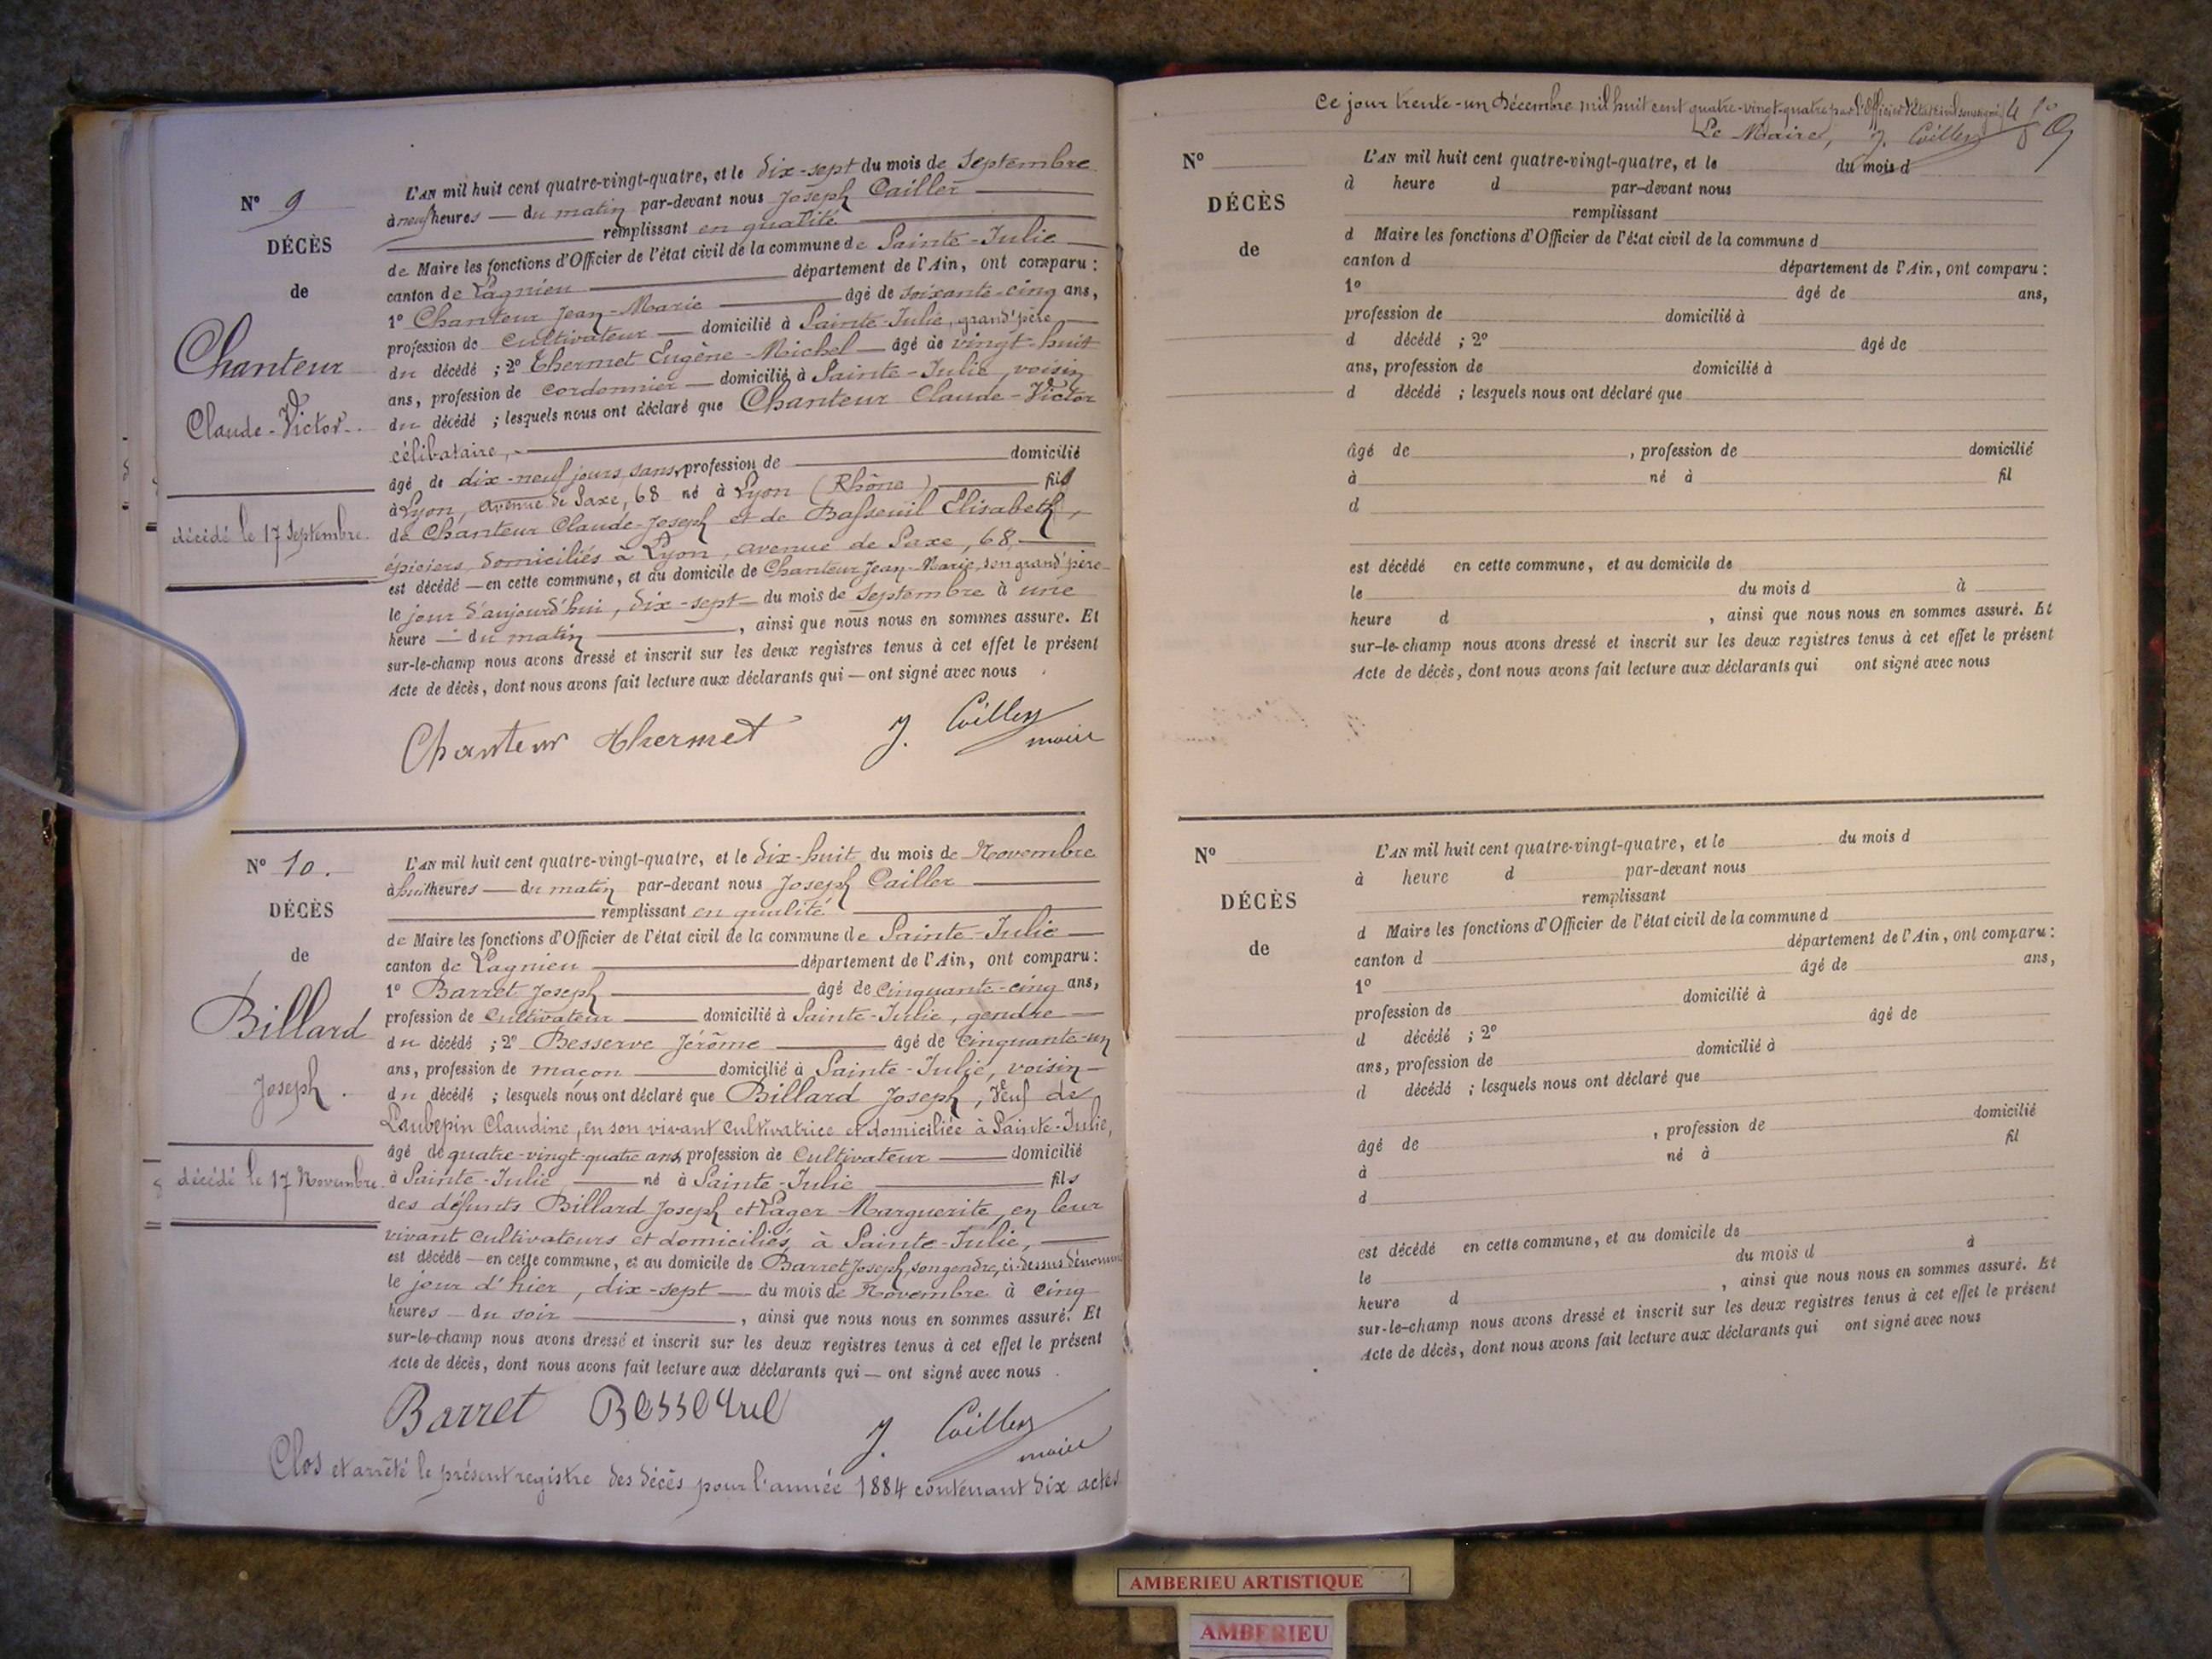 N° 9
DÉCÈS
de
Chanteur
Claude-Victor
décédé le 17 Septembre
L'AN mil huit cent quatre-vingt-quatre, et le dix-sept du mois de Septembre
à neuf heures — du matin par-devant nous Joseph Cailler
remplissant en qualité
de Maire les fonctions d'Officier de l'état civil de la commune de Sainte-Julie
canton de Lagnieu département de l'Ain, ont comparu :
1° Chanteur Jean-Marie âgé de soixante-cinq ans,
profession de cultivateur — domicilié à Sainte-Julie, grand'père
du décédé ; 2° Thermet Eugène-Michel — âgé de vingt-huit
ans, profession de cordonnier — domicilié à Sainte-Julie, voisin
du décédé ; lesquels nous ont déclaré que Chanteur Claude-Victor
célibataire,
âgé de dix-neuf jours, sans profession de domicilié
à Lyon, avenue de Saxe, 68 né à Lyon (Rhône) fils
de Chanteur Claude-Joseph et de Basseuil Elisabeth,
épiciers, domiciliés à Lyon, avenue de Saxe, 68,
est décédé — en cette commune, et au domicile de Chanteur Jean-Marie, son grand'père
le jour d'aujourd'hui, dix-sept — du mois de Septembre à une
heure — du matin , ainsi que nous nous en sommes assuré. Et
sur-le-champ nous avons dressé et inscrit sur les deux registres tenus à cet effet le présent
Acte de décès, dont nous avons fait lecture aux déclarants qui — ont signé avec nous
Chanteur Thermet J. Cailler
maire
N° 10.
DÉCÈS
de
Billard
Joseph.
décédé le 17 Novembre
L'AN mil huit cent quatre-vingt-quatre, et le dix-huit du mois de Novembre
à huit heures — du matin par-devant nous Joseph Cailler
remplissant en qualité
de Maire les fonctions d'Officier de l'état civil de la commune de Sainte-Julie
canton de Lagnieu département de l'Ain, ont comparu :
1° Barret Joseph âgé de cinquante-cinq ans,
profession de cultivateur domicilié à Sainte-Julie, gendre
du décédé ; 2° Besserve Jérôme âgé de cinquante-un
ans, profession de maçon domicilié à Sainte-Julie, voisin
du décédé ; lesquels nous ont déclaré que Billard Joseph, veuf de
Laubepin Claudine, en son vivant cultivatrice et domiciliée à Sainte-Julie,
âgé de quatre-vingt-quatre ans, profession de cultivateur domicilié
à Sainte-Julie né à Sainte-Julie fils
des défunts Billard Joseph et Lager Marguerite, en leur
vivant cultivateurs et domiciliés à Sainte-Julie,
est décédé — en cette commune, et au domicile de Barret Joseph, son gendre, ci-dessus dénommé
le jour d'hier, dix-sept — du mois de Novembre à cinq
heures — du soir , ainsi que nous nous en sommes assuré. Et
sur-le-champ nous avons dressé et inscrit sur les deux registres tenus à cet effet le présent
Acte de décès, dont nous avons fait lecture aux déclarants qui — ont signé avec nous
Barret Besserve J. Cailler
maire
Clos et arrêté le présent registre des décès pour l'année 1884 contenant dix actes
Ce jour trente-un Décembre mil huit cent quatre-vingt-quatre par l'Officier d'état civil soussigné
Le Maire, J. Cailler
N°
DÉCÈS
de
L'AN mil huit cent quatre-vingt-quatre, et le du mois d
à heure d par-devant nous
remplissant
d Maire les fonctions d'Officier de l'état civil de la commune d
canton d département de l'Ain, ont comparu :
1° âgé de ans,
profession de domicilié à
d décédé ; 2° âgé de
ans, profession de domicilié à
d décédé ; lesquels nous ont déclaré que
âgé de , profession de domicilié
à né à fil
d
est décédé en cette commune, et au domicile de
le du mois d à
heure d , ainsi que nous nous en sommes assuré. Et
sur-le-champ nous avons dressé et inscrit sur les deux registres tenus à cet effet le présent
Acte de décès, dont nous avons fait lecture aux déclarants qui ont signé avec nous
N°
DÉCÈS
de
L'AN mil huit cent quatre-vingt-quatre, et le du mois d
à heure d par-devant nous
remplissant
d Maire les fonctions d'Officier de l'état civil de la commune d
canton d département de l'Ain, ont comparu :
1° âgé de ans,
profession de domicilié à
d décédé ; 2° âgé de
ans, profession de domicilié à
d décédé ; lesquels nous ont déclaré que
âgé de , profession de domicilié
à né à fil
d
est décédé en cette commune, et au domicile de
le du mois d à
heure d , ainsi que nous nous en sommes assuré. Et
sur-le-champ nous avons dressé et inscrit sur les deux registres tenus à cet effet le présent
Acte de décès, dont nous avons fait lecture aux déclarants qui ont signé avec nous
AMBERIEU ARTISTIQUE
AMBERIEU